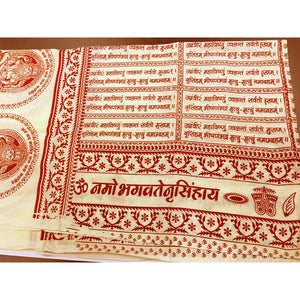 उग्रंवीरं महाविष्णुं ज्वलन्तं सर्वतो मुखम्।
नृसिंहम् भीषणंभद्रम् मृत्यु मृत्युं नमाम्यहम्॥
उग्रंवीरं महाविष्णुं ज्वलन्तं सर्वतो मुखम्।
नृसिंहम् भीषणंभद्रम् मृत्यु मृत्युं नमाम्यहम्॥
उग्रंवीरं महाविष्णुं ज्वलन्तं सर्वतो मुखम्।
नृसिंहम् भीषणंभद्रम् मृत्यु मृत्युं नमाम्यहम्॥
उग्रंवीरं महाविष्णुं ज्वलन्तं सर्वतो मुखम्।
नृसिंहम् भीषणंभद्रम् मृत्यु मृत्युं नमाम्यहम्॥
उग्रंवीरं महाविष्णुं ज्वलन्तं सर्वतो मुखम्।
नृसिंहम् भीषणंभद्रम् मृत्यु मृत्युं नमाम्यहम्॥
उग्रंवीरं महाविष्णुं ज्वलन्तं सर्वतो मुखम्।
नृसिंहम् भीषणंभद्रम् मृत्यु मृत्युं नमाम्यहम्॥
उग्रंवीरं महाविष्णुं ज्वलन्तं सर्वतो मुखम्।
नृसिंहम् भीषणंभद्रम् मृत्यु मृत्युं नमाम्यहम्॥
उग्रंवीरं महाविष्णुं ज्वलन्तं सर्वतो मुखम्।
नृसिंहम् भीषणंभद्रम् मृत्यु मृत्युं नमाम्यहम्॥
ॐ नमो भगवते नृसिंहाय